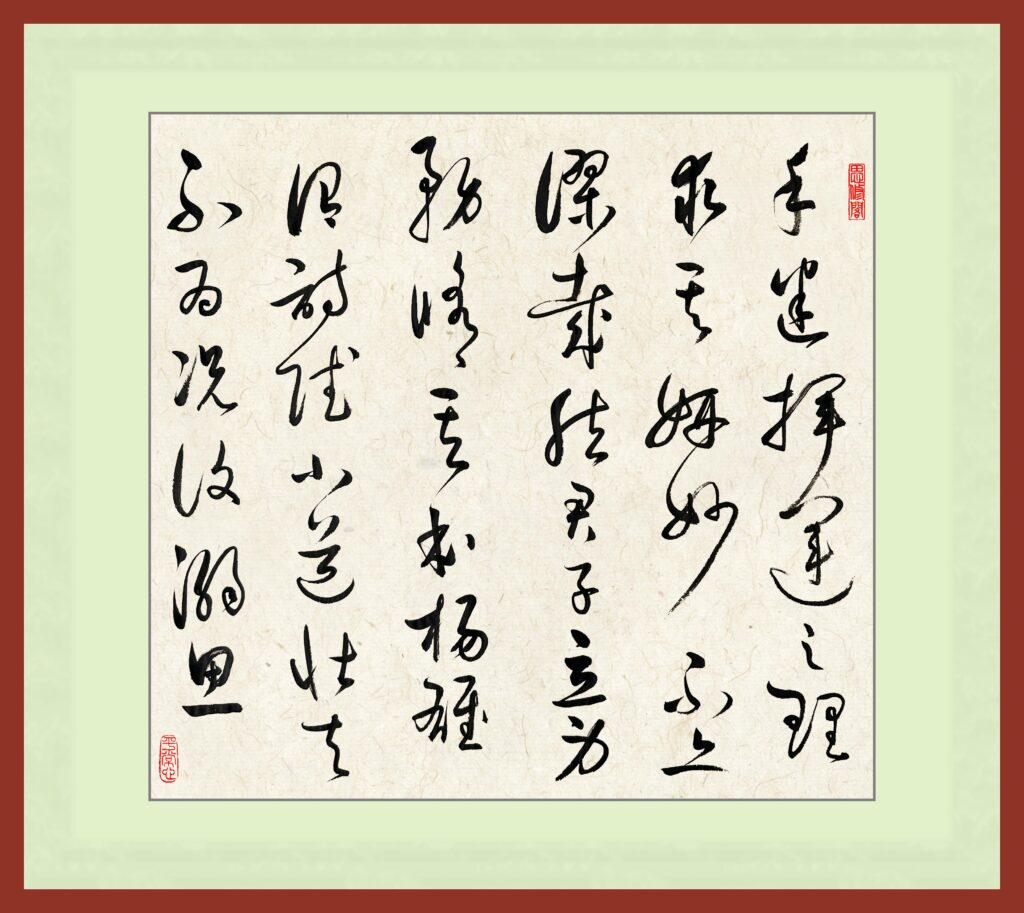 手迷揮運之理
求其妍妙不亦
謬哉然君子立身
務脩其本楊雄
謂詩賦小道壯夫
不為況復溺思
平常心